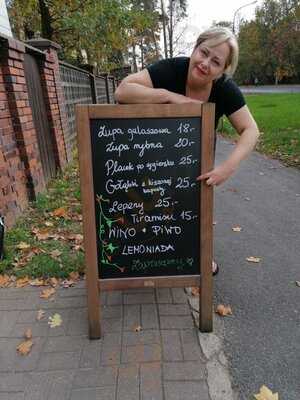 Zupa gulaszowa 18,-
Zupa rybna 20,-
Placek po węgiersku 25,-
Gołąbki z kiszonej kapusty 25,-
Leczo 25,-
Tiramisu 15,-
WINO + PIWO
LEMONIADA
Zapraszamy ♡